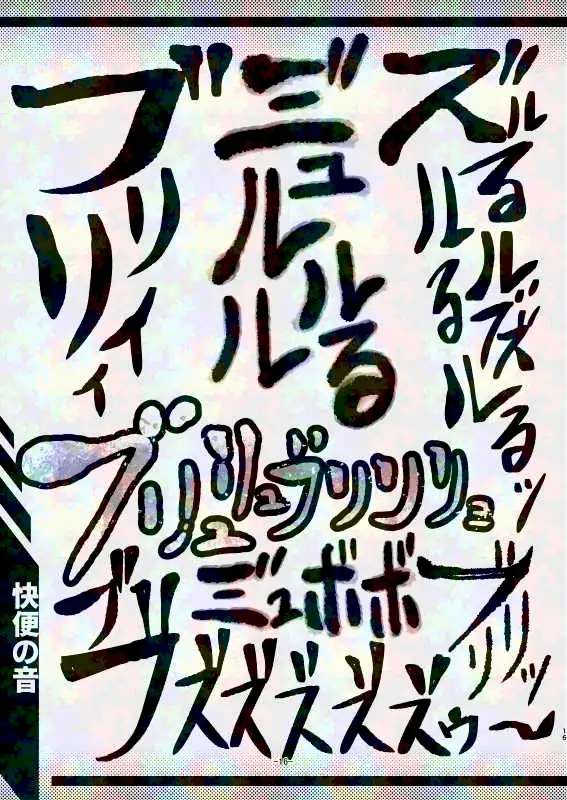 ズルるルるルるルズるッ
ジュルルルる
ブリリイィ
ブリュリュブリリリョ
ブリリッ
ジュボボ
ブリ
ブズズズズズゥ〜
快便の音
-16-
16